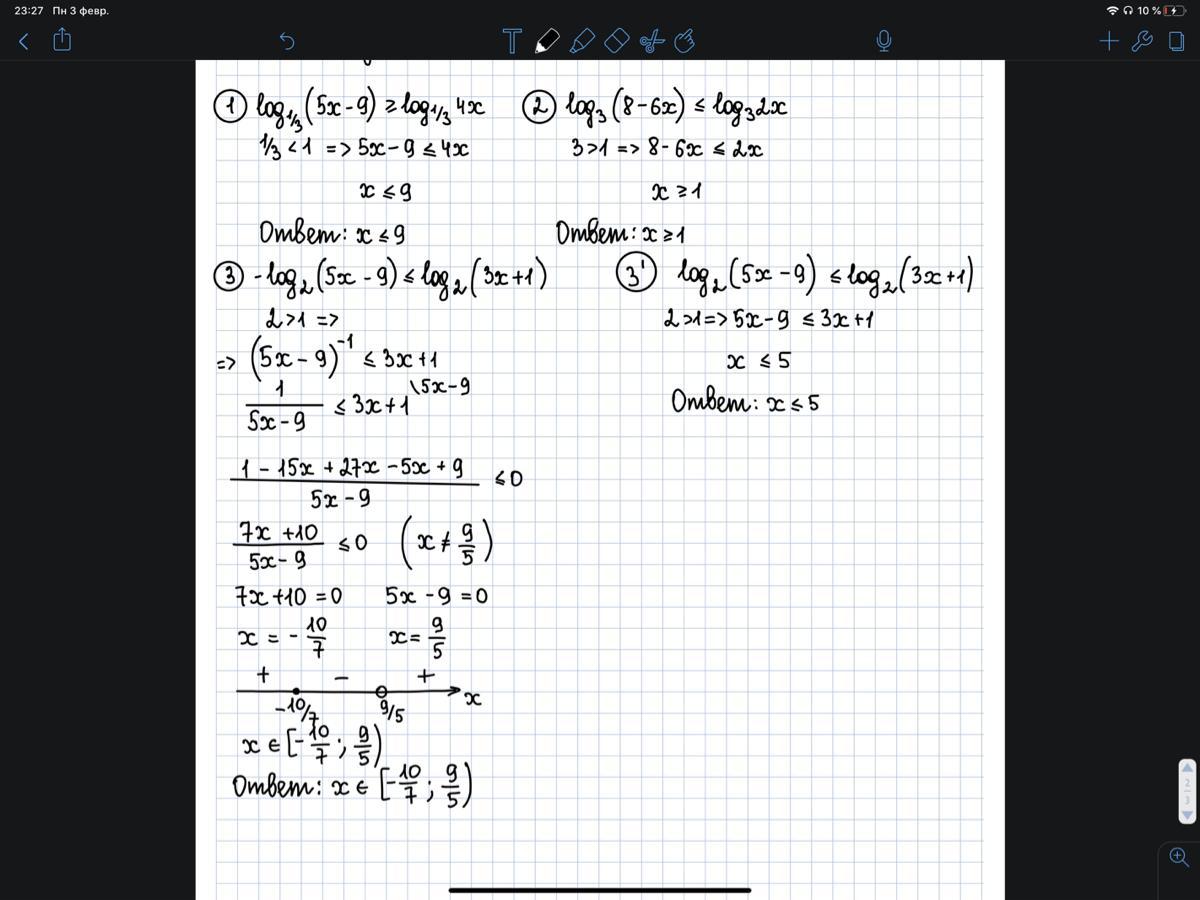 23:27 Пн 3 февр.
10 %
① log₁/₃(5x-9) ≥ log₁/₃ 4x
1/3 < 1 => 5x-9 ≤ 4x
x ≤ 9
Ответ: x ≤ 9
② log₃(8-6x) ≤ log₃2x
3>1 => 8-6x ≤ 2x
x ≥ 1
Ответ: x ≥ 1
③ -log₂(5x-9) ≤ log₂(3x+1)
2>1 =>
=> (5x-9)⁻¹ ≤ 3x+1
1/(5x-9) ≤ 3x+1 \5x-9
(1-15x+27x-5x+9)/(5x-9) ≤ 0
(7x+10)/(5x-9) ≤ 0 (x ≠ 9/5)
7x+10=0 5x-9=0
x = -10/7 x = 9/5
+ - +
-10/7 9/5 x
x ∈ [-10/7; 9/5)
Ответ: x ∈ [-10/7; 9/5)
3' log₂(5x-9) ≤ log₂(3x+1)
2>1 => 5x-9 ≤ 3x+1
x ≤ 5
Ответ: x ≤ 5
2
3